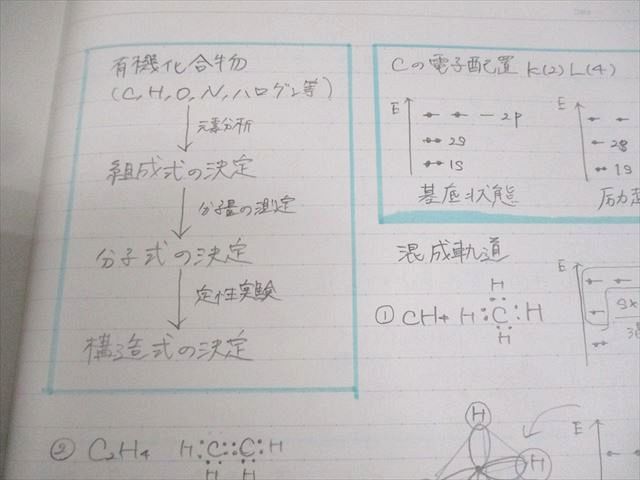 有機化合物
(C, H, O, N, ハロゲン等)
元素分析
組成式の決定
分子量の測定
分子式の決定
定性実験
構造式の決定
Cの電子配置 K(2) L(4)
E
2p
2s
1s
基底状態
E
2s
1s
混成軌道
① CH4
H
H:C:H
H
E
② C2H4
H:C::C:H
H H
H
H
E